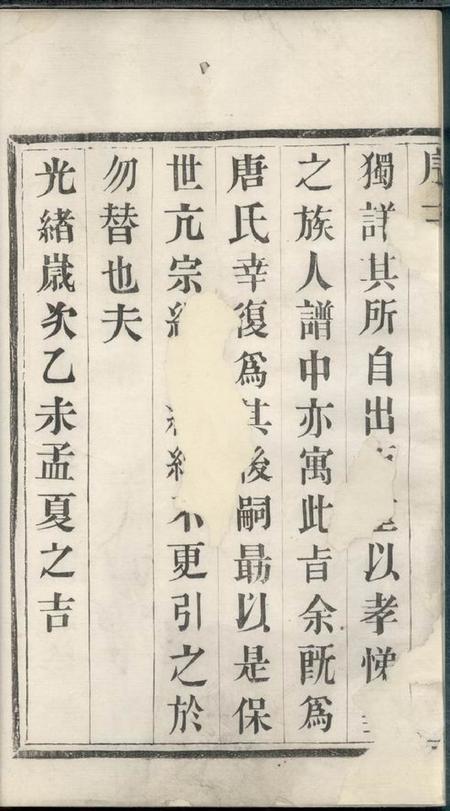 序
獨詳其所自出以孝悌
之族人譜中亦寓此旨余既爲
唐氏幸復爲其後嗣勗以是保
世亢宗不更引之於
勿替也夫
光緒嵗次乙未孟夏之吉